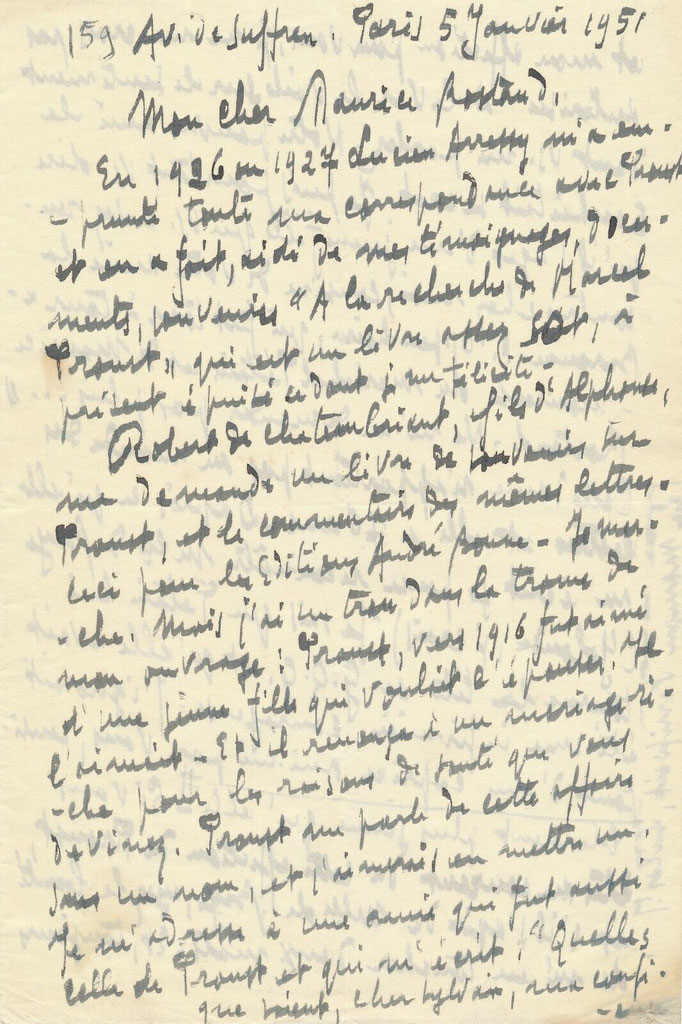 159 Av. de Suffren. Paris 5 Janvier 1951
Mon cher Maurice Rostand,
En 1926 ou 1927 Lucien Arressy m'a em-
-prunté toute ma correspondance avec Proust
et en a fait, aidé de mes témoignages, docu-
ments, souvenirs "A la recherche de Marcel
Proust" qui est un livre assez sot, à
présent épuisé ce dont je me félicite -
Robert de Chateaubriant, fils d'Alphonse,
me demande un livre de souvenirs sur
Proust, et le commentaire des mêmes lettres.
Ceci pour les Editions André Bonne - Je mar-
-che. Mais j'ai un trou dans la trame de
mon ouvrage : Proust, vers 1916 fut aimé
d'une jeune fille qui voulait l'épouser. Il
l'aimait - Et il renonça à un mariage ri-
-che pour les raisons de santé que vous
devinez. Proust me parle de cette affaire
sans un nom, et j'aimerais en mettre un.
Je m'adresse à une amie qui fut aussi
celle de Proust et qui m'écrit : "Quelles
que soient, cher Sylvain, ma confi-